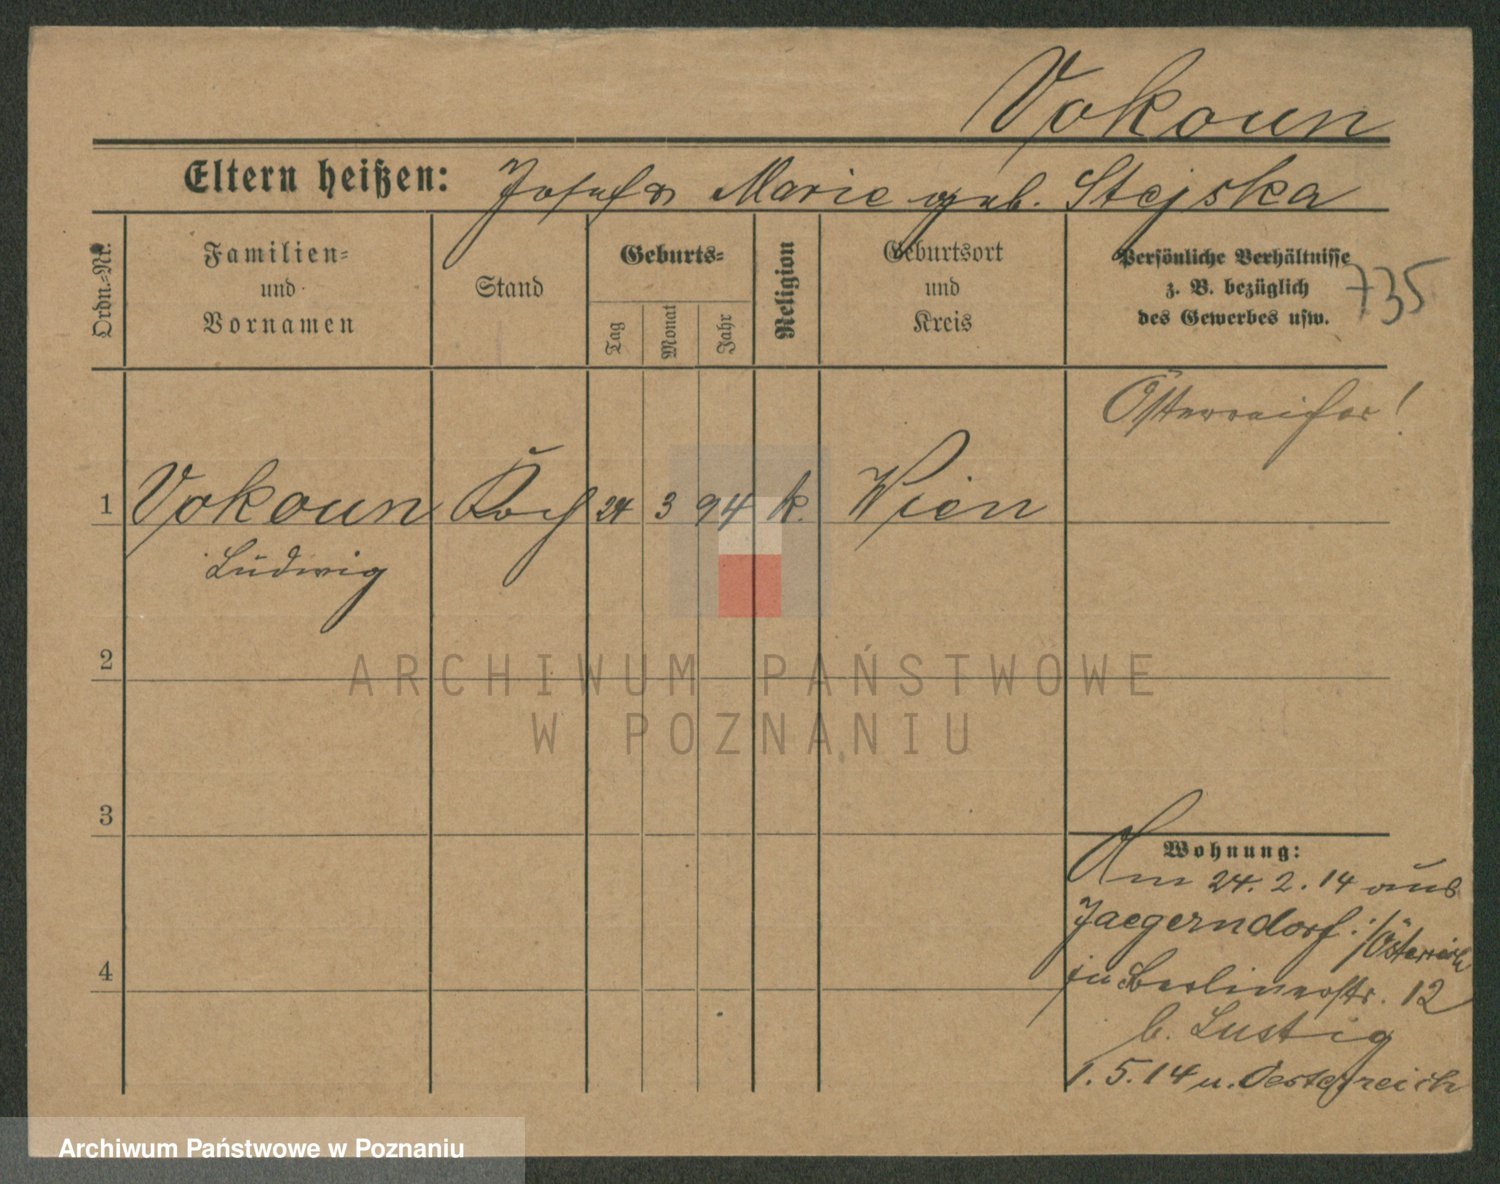 Vokoun
Eltern heißen: Josef & Marie geb. Stejska
Ordn.-Nr.
Familien-
und
Vornamen
Stand
Geburts-
Tag
Monat
Jahr
Religion
Geburtsort
und
Kreis
Persönliche Verhältnisse
z. B. bezüglich
des Gewerbes usw.
735
Österreicher!
1 Vokoun Koch 24 3 94 k. Wien
Ludwig
2
3
4
Wohnung:
Am 24.2.14 aus
Jaegerndorf :/Österreich
in Berlinerstr. 12
b. Lustig
1.5.14 n. Oesterreich
ARCHIWUM PAŃSTWOWE
W POZNANIU
Archiwum Państwowe w Poznaniu